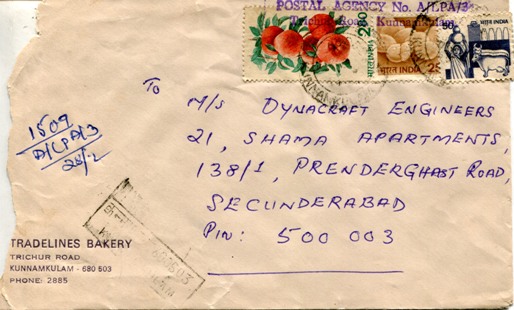 POSTAL AGENCY No. A/LPA/3
Trichur Road, Kunnamkulam
भारत INDIA
280
भारत INDIA
25
50
भारत INDIA
To
M/S DYNACRAFT ENGINEERS
21, SHAMA APARTMENTS,
138/1, PRENDERGHAST ROAD,
SECUNDERABAD
PIN: 500 003
1509
A/LPA/3
28/2
TRADELINES BAKERY
TRICHUR ROAD
KUNNAMKULAM - 680 503
PHONE: 2885